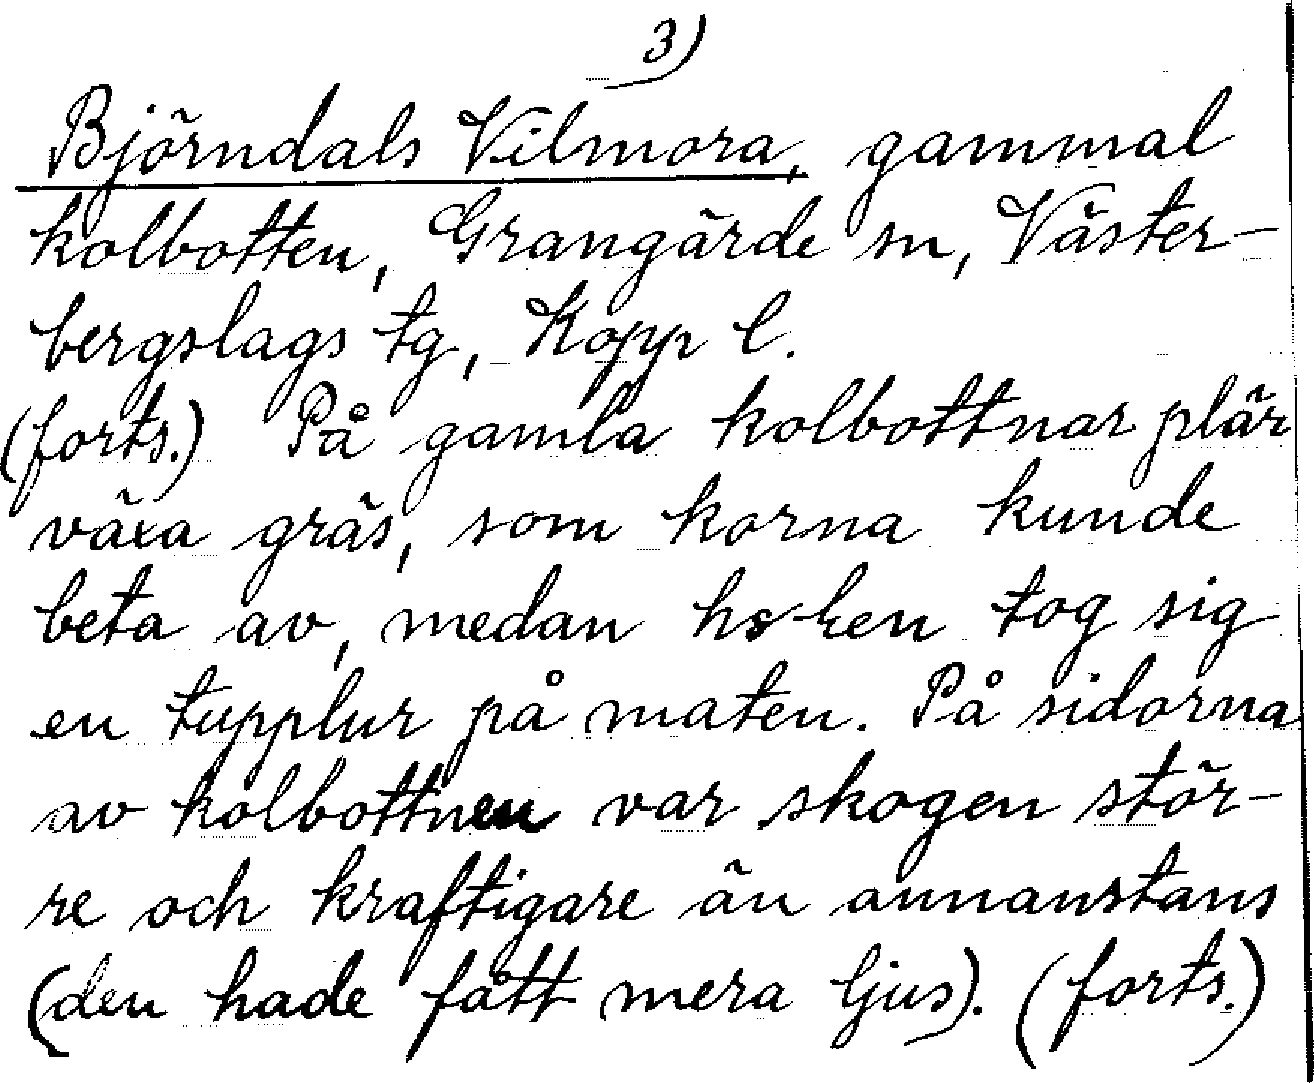 3)
Björndals Vilmora, gammal
kolbotten, Grangärde sn, Väster-
bergslags tg, Kopp l.
(forts.) På gamla kolbottnar plär
växa gräs, som korna kunde
beta av, medan hsken tog sig
en tupplur på maten. På sidorna
av kolbottnen var skogen stör-
re och kraftigare än annanstans
(den hade fått mera ljus). (forts.)